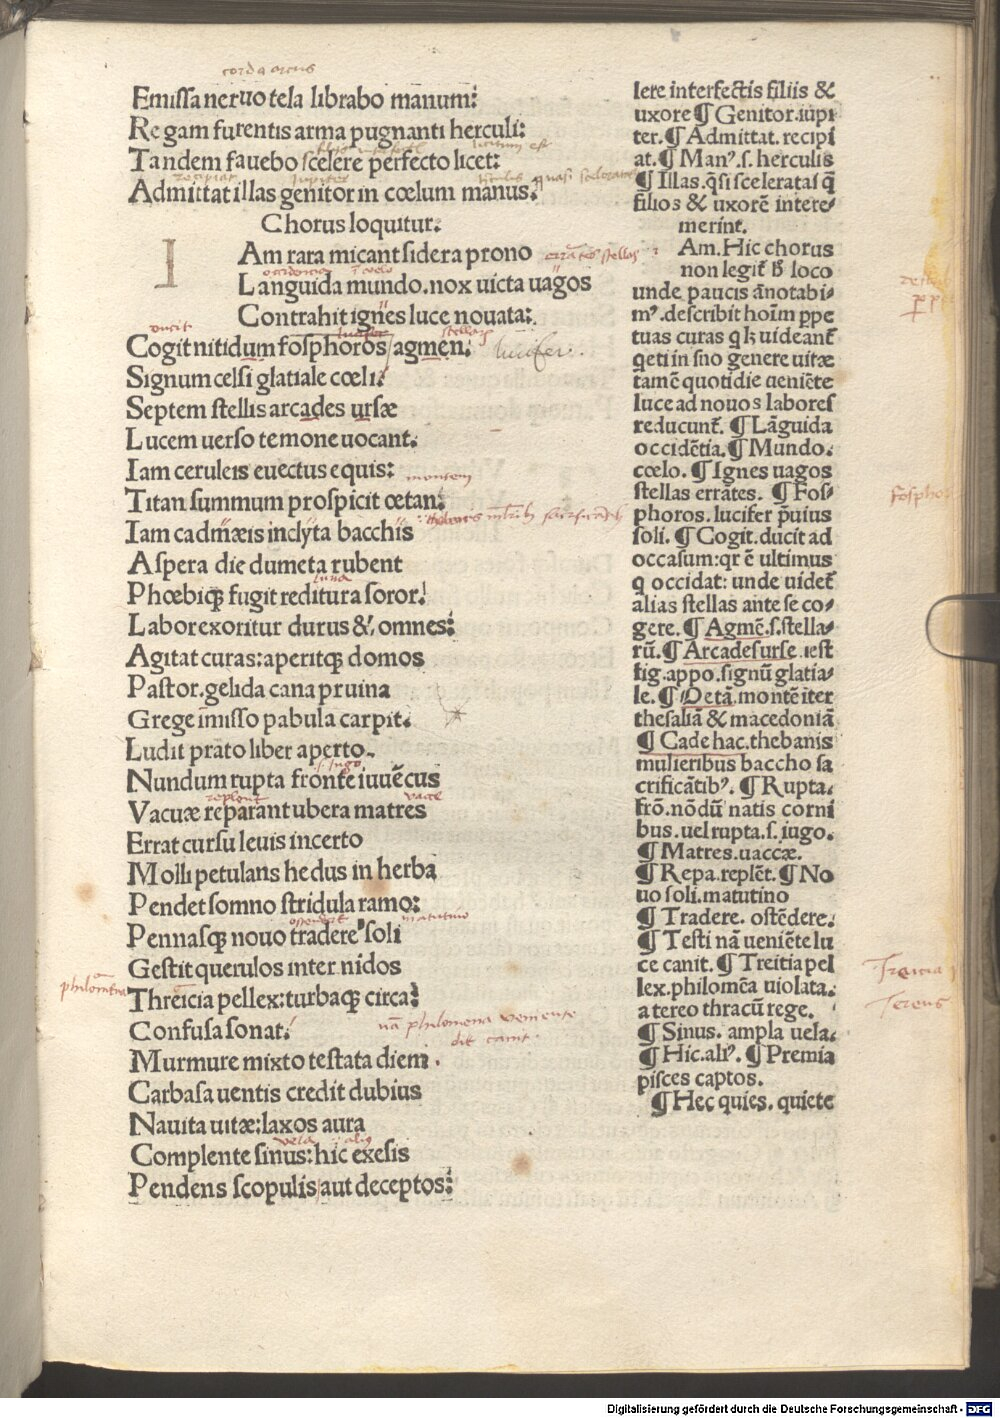 corda arcus
Emissa neruo tela librabo manum:
Regam furentis arma pugnanti herculi:
Tandem fauebo scelere perfecto licet:
Admittat illas genitor in cœlum manus.
Chorus loquitur.
I
Am rara micant sidera prono
Languida mundo.nox uicta uagos
Contrahit ignes luce nouata:
Cogit nitidum fosphoros/agmen. lucifer.
Signum celsi glatiale cœli:
Septem stellis arcades ursæ
Lucem uerso temone uocant.
Iam ceruleis euectus equis: montem
Titan summum prospicit œtan.
Iam cadmæis inclyta bacchis
Aspera die dumeta rubent
luna
Phœbiq; fugit reditura soror.
Labor exoritur durus & omnes:
Agitat curas:aperitq; domos
Pastor.gelida cana pruina
Grege imisso pabula carpit.
Ludit prato liber aperto.
s. iugo
Nundum rupta fronte iuuēcus
replent vacce
Vacuæ reparant ubera matres
Errat cursu leuis incerto
Molli petulans hedus in herba
Pendet somno stridula ramo:
ostendere matutino
Pennasq; nouo tradere soli
Gestit querulos inter nidos
philomena
Threicia pellex:turbaq; circa:
Confusa sonat. nā philomena veniente
die canit
Murmure mixto testata diem.
Carbasa uentis credit dubius
Nauita uitæ:laxos aura
vela
Complente sinus:hic exesis
Pendens scopulis/aut deceptos:
lere interfectis filiis &
uxore ¶ Genitor.iupi
ter.¶ Admittat.recipi
at.¶ Manꝰ.s.herculis
¶ Illas.q̄si sceleratas q̄
filios & uxorē intere-
merint.
Am.Hic chorus
non legit᷑ ī loco
unde paucis ānotabi-
mꝰ.describit hoīm ꝑpe
tuas curas q lꝫ uideant᷑
q̄eti in suo genere uitæ
tamē quotidie ueniēte
luce ad nouos labores
reducunt᷑. ¶ Lāguida
occidētia.¶ Mundo.
cœlo. ¶ Ignes uagos
stellas errātes. ¶ Fos-
phoros.lucifer p̄uius
soli. ¶ Cogit.ducit ad
occasum:qr ē ultimus
q occidat: unde uidet᷑
alias stellas ante se co-
gere.¶ Agmē.s.stella-
rū.¶ Arcades urse.est
fig.appo.signū glatia-
le.¶ Oetā.montē iter
thesaliā & macedoniā
¶ Cade hac.thebanis
mulieribus baccho sa
crificātibꝰ. ¶ Rupta.
frō.nōdū natis corni
bus.uel rupta.s.iugo.
¶ Matres.uaccæ.
¶ Repa.replēt.¶ No
uo soli.matutino
¶ Tradere. ostēdere.
¶ Testi nā ueniēte lu
ce canit. ¶ Treitia pel
lex.philomēa uiolata.
a tereo thracū rege.
¶ Sinus. ampla uela.
¶ Hic.aliꝰ. ¶ Premia
pisces captos.
¶ Hec quies. quiete
fospho
Traicia
Tereus
Digitalisierung gefördert durch die Deutsche Forschungsgemeinschaft - DFG